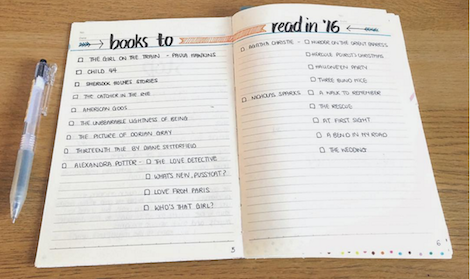 books to
THE GIRL ON THE TRAIN - PAULA HAWKINS
CHILD 44
SHERLOCK HOLMES STORIES
THE CATCHER IN THE RYE
AMERICAN GODS
THE UNBEARABLE LIGHTNESS OF BEING
THE PICTURE OF DORIAN GRAY
THIRTEENTH TALE BY DIANE SETTERFIELD
ALEXANDRA POTTER - THE LOVE DETECTIVE
WHAT'S NEW, PUSSYCAT?
LOVE FROM PARIS
WHO'S THAT GIRL?
5
read in '16
AGATHA CHRISTIE - MURDER ON THE ORIENT EXPRESS
HERCULE POIROT'S CHRISTMAS
HALLOWE'EN PARTY
THREE BLIND MICE
NICHOLAS SPARKS - A WALK TO REMEMBER
THE RESCUE
AT FIRST SIGHT
A BEND IN MY ROAD
THE WEDDING
6